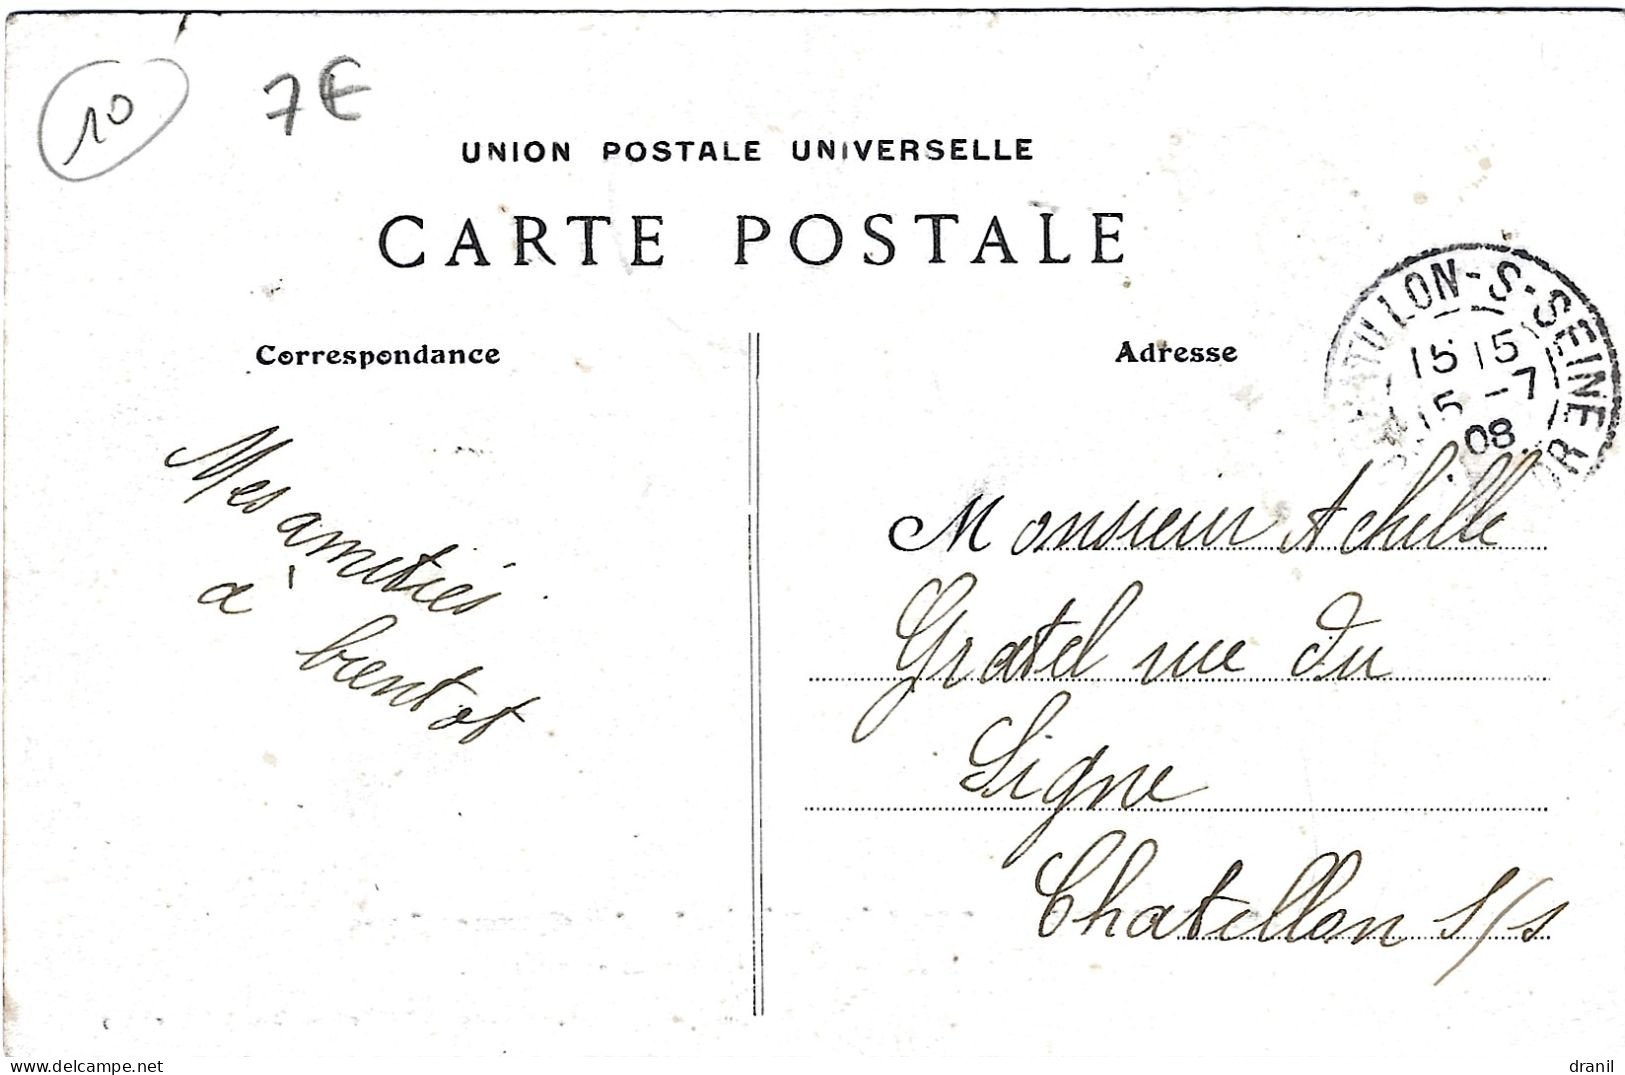 10
7€
UNION POSTALE UNIVERSELLE
CARTE POSTALE
Correspondance
Adresse
TILLON-S-SEINE
15 15
15 -7
08
Mes amitiés
à bientot
Monsieur Achille
Gratel rue du
Signe
Chatillon s/s
www.delcampe.net
dranil